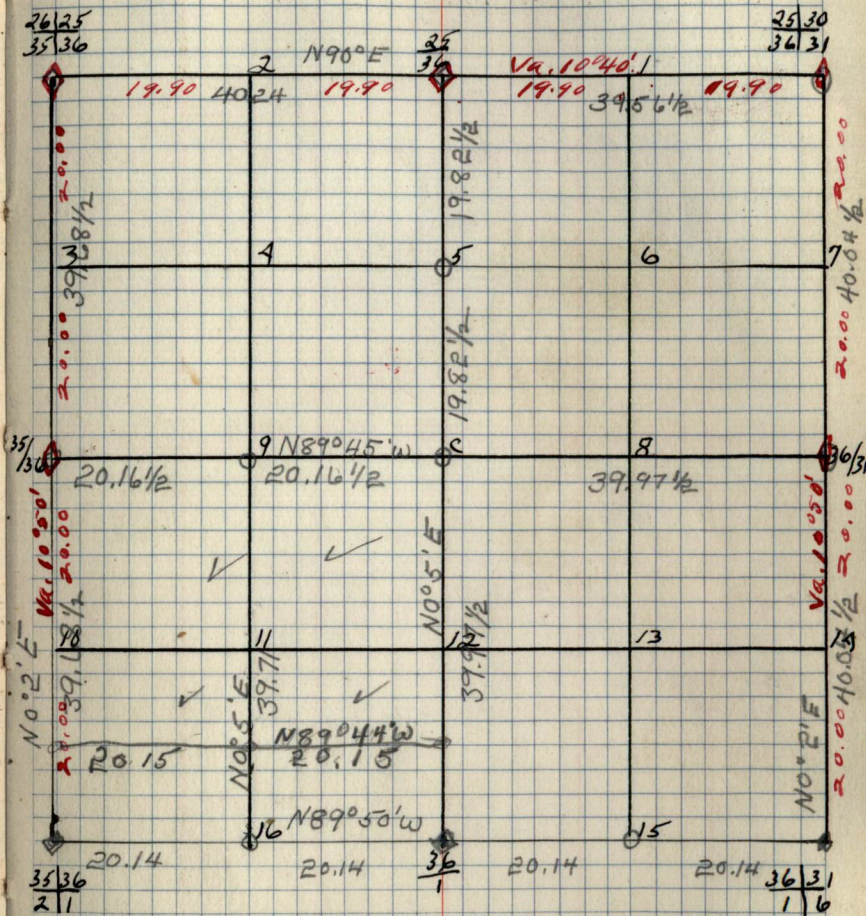 26|25 25 25|30
35|36 36 36|31
2 N90°E Va. 10°40' 1
19.90 4024 19.90 19.90 39.56½ 19.90
20.00 39.68½ 19.82½ 20.00 40.04½
3 4 5 6 7
20.00 19.82½ 20.00
35/36 9 N89°45'W C 8 36/31
20.16½ 20.16½ 39.97½
Va. 10°50' 20.00 N0°5'E Va. 10°50' 20.00
11 12 13
N0°2'E 39.68½ 39.71 39.97½ 40.04½
20.00 N0°5'E N89°44'W N0°2'E 20.00
20.15 20.15
16 N89°50'W 15
20.14 20.14 20.14 20.14
35|36 36 36|31
2|1 1 1|6